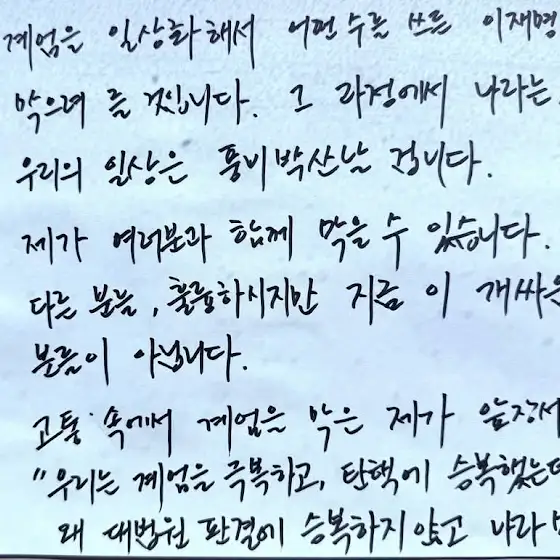 계엄을 일상화해서 어떤 수를 쓰든 이재명
막으려 들 것입니다. 그 과정에서 나라는
우리의 일상은 풍비박산날 겁니다.
제가 여러분과 함께 막을 수 있습니다.
다른 분들, 훌륭하시지만 지금 이 개싸움
분들이 아닙니다.
고통 속에서 계엄을 막은 제가 앞장서
"우리는 계엄을 극복하고, 탄핵에 승복했는데
왜 대법원 판결에 승복하지 않고 나라